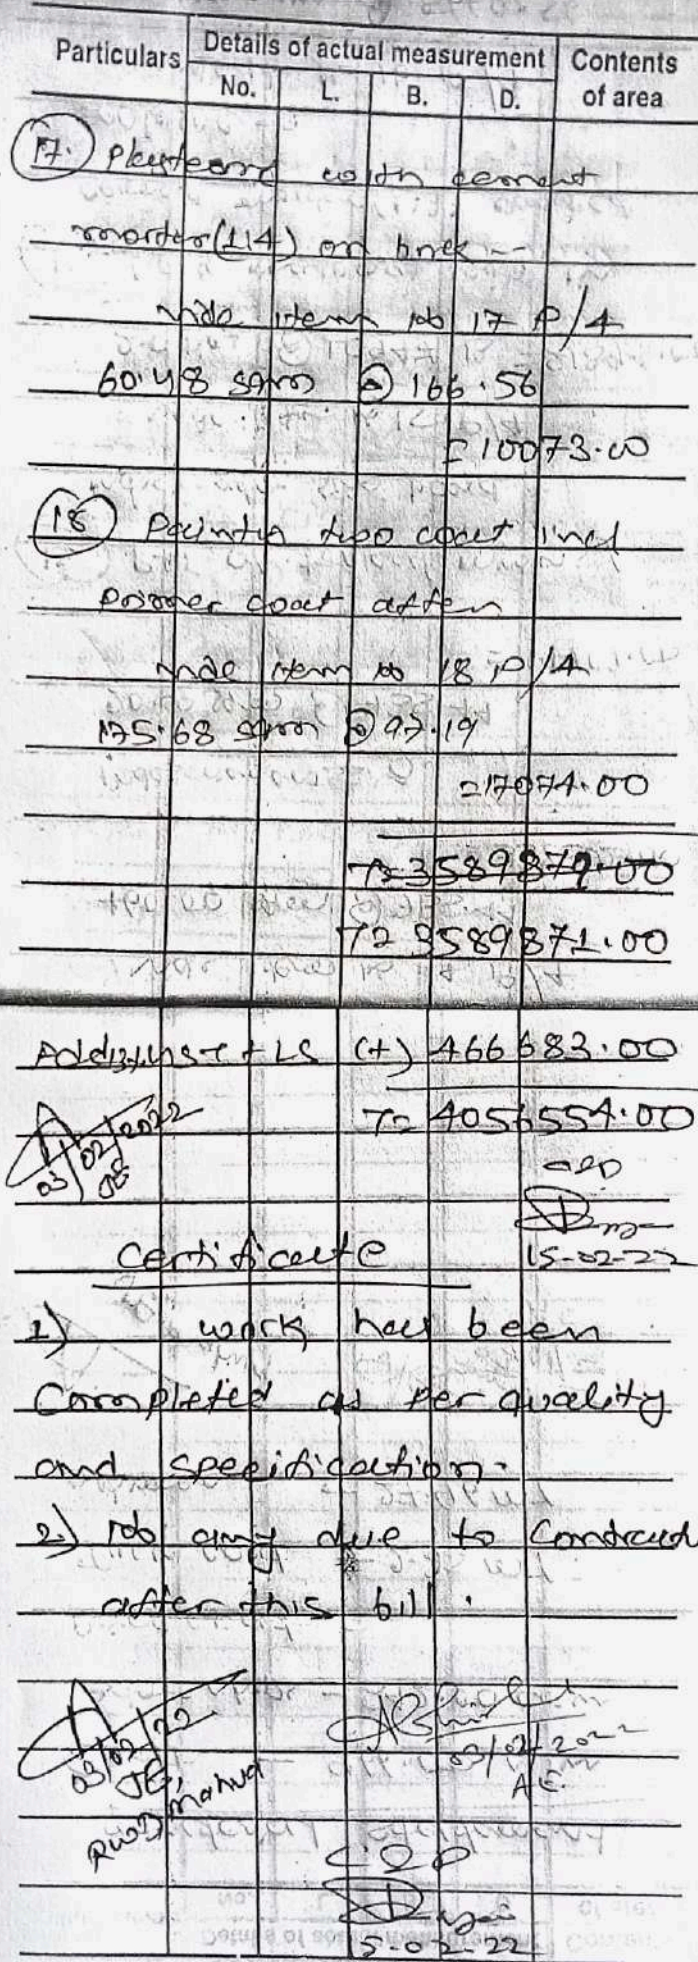 Particulars Details of actual measurement Contents of area
No. L. B. D.
17. Plastering with cement
mortar (1:4) on brick --
vide item no 17 P/4
60.48 sqm @ 166.56
= 10073.00
18 Painting two coat incl
primer coat after
vide item no 18, P/4
175.68 sqm @ 97.19
= 17074.00
T= 3589879.00
T= 3589871.00
Add 13% GST + LS (+) 466683.00
T= 4056554.00
03/02/2022
JE
15-02-22
Certificate
1) work has been
Completed as per quality
and specification.
2) No any due to Contract
after this bill.
03/02/22
JE,
RWD
03/02/2022
A.E.
15-02-22